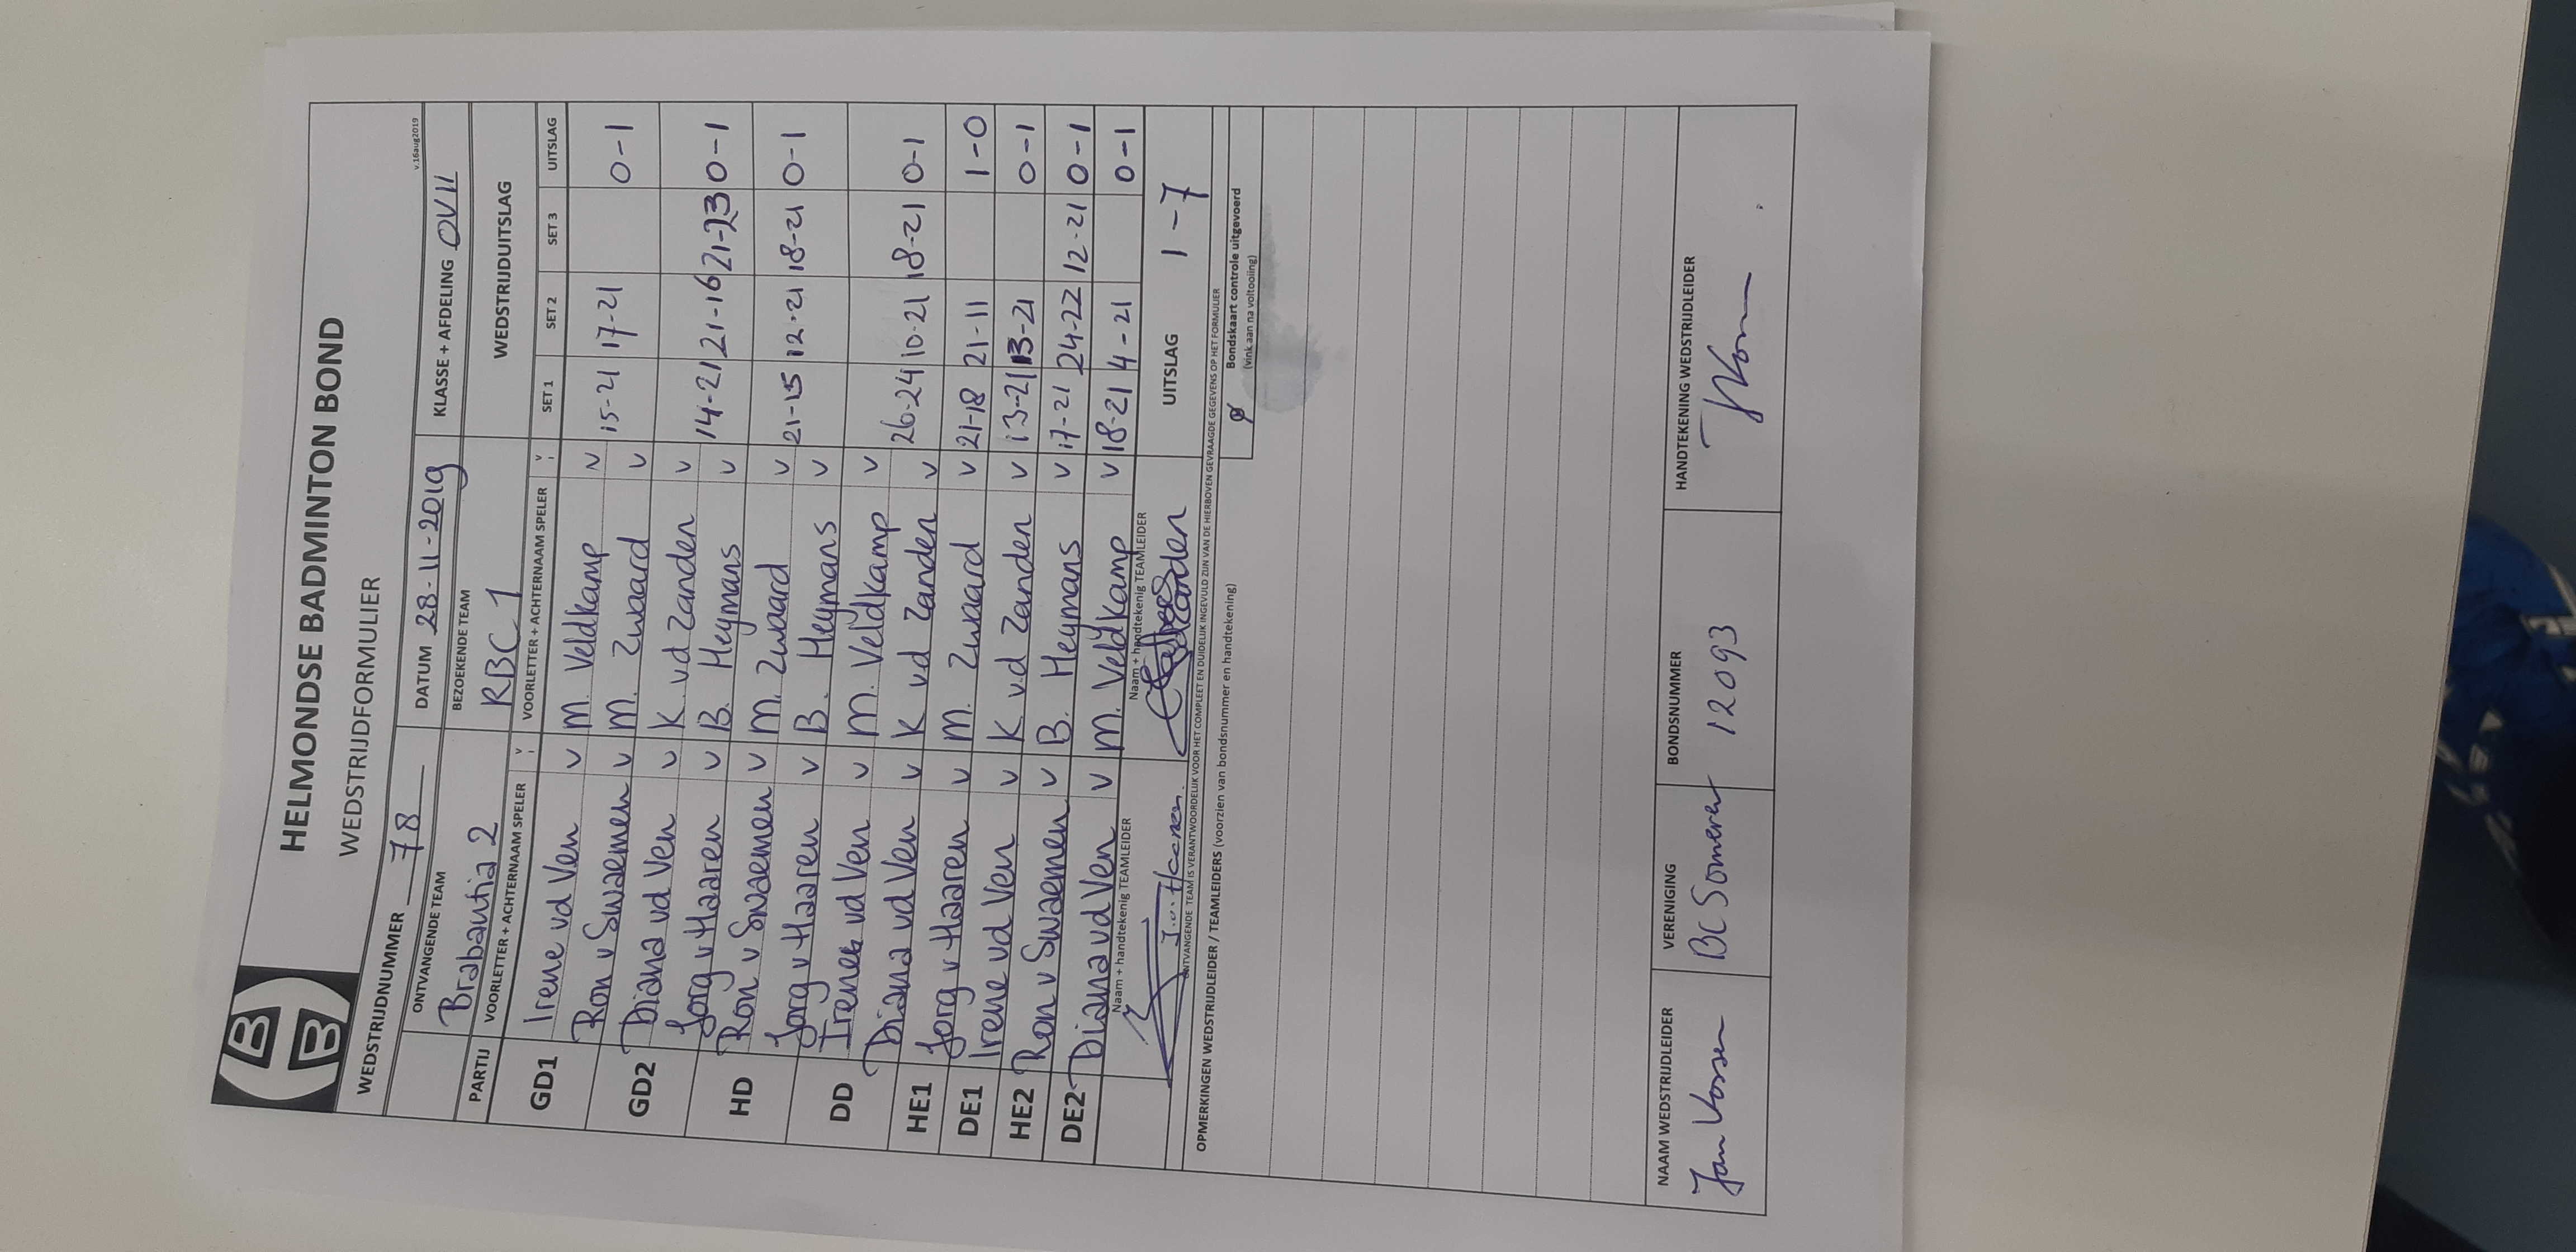 HELMONDSE BADMINTON BOND
WEDSTRIJDFORMULIER
v.16aug2019
WEDSTRIJDNUMMER 78 DATUM 28-11-2019 KLASSE + AFDELING OV11
ONTVANGENDE TEAM BEZOEKENDE TEAM WEDSTRIJDUITSLAG
Brabantia 2 RBC 1
PARTIJ VOORLETTER + ACHTERNAAM SPELER v VOORLETTER + ACHTERNAAM SPELER v SET 1 SET 2 SET 3 UITSLAG
GD1 Irene vd Ven v M. Veldkamp v
Ron v Swaemen v M. Zwaard v 15-21 17-21 0-1
GD2 Diana vd Ven v K. vd Zanden v
Jorg v Haaren v B. Heymans v 14-21 21-16 21-23 0-1
HD Ron v Swaemen v M. Zwaard v
Jorg v Haaren v B. Heymans v 21-15 12-21 18-21 0-1
DD Irene vd Ven v M. Veldkamp v
Diana vd Ven v K vd Zanden v 26-24 10-21 18-21 0-1
HE1 Jorg v Haaren v M. Zwaard v 21-18 21-11 1-0
DE1 Irene vd Ven v K vd Zanden v 13-21 13-21 0-1
HE2 Ron v Swaemen v B. Heymans v 17-21 24-22 12-21 0-1
DE2 Diana vd Ven v M. Veldkamp v 18-21 4-21 0-1
Naam + handtekenig TEAMLEIDER Naam + handtekenig TEAMLEIDER UITSLAG 1-7
J.v. Haaren
ONTVANGENDE TEAM IS VERANTWOORDELIJK VOOR HET COMPLEET EN DUIDELIJK INGEVULD ZIJN VAN DE HIERBOVEN GEVRAAGDE GEGEVENS OP HET FORMULIER
OPMERKINGEN WEDSTRIJDLEIDER / TEAMLEIDERS (voorzien van bondsnummer en handtekening)
Bondskaart controle uitgevoerd
(vink aan na voltooiing)
NAAM WEDSTRIJDLEIDER VERENIGING BONDSNUMMER HANDTEKENING WEDSTRIJDLEIDER
Jan Vossen BC Someren 12093